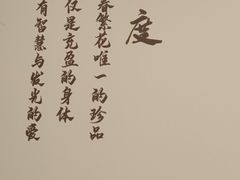 度
春繁花唯一的珍品
仅是充盈的身体
有智慧与发光的爱